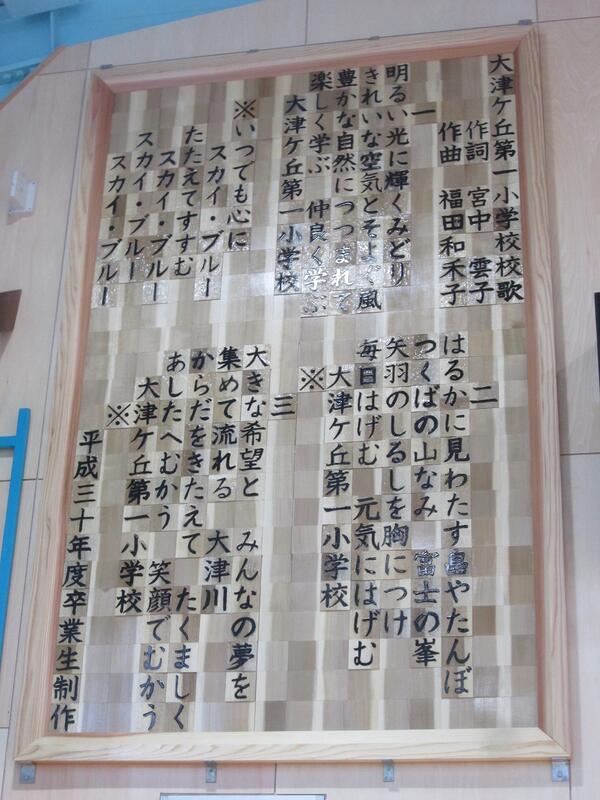 大津ケ丘第一小学校校歌
作詞 宮中 雲子
作曲 福田和禾子
一
明るい光に輝くみどり
きれいな空気とそよぐ風
豊かな自然につつまれて
楽しく学ぶ 仲良く学ぶ
大津ケ丘第一小学校
※いつでも心に
スカイ・ブルー
たたえてすすむ
スカイ・ブルー
スカイ・ブルー
スカイ・ブルー
二
はるかに見わたす畠やたんぼ
つくばの山なみ 富士の峯
矢羽のしるしを胸につけ
毎日はげむ 元気にはげむ
大津ケ丘第一小学校
※
三
大きな希望と みんなの夢を
集めて流れる 大津川
からだをきたえて たくましく
あしたへむかう 笑顔でむかう
大津ケ丘第一小学校
※
平成三十年度卒業生制作